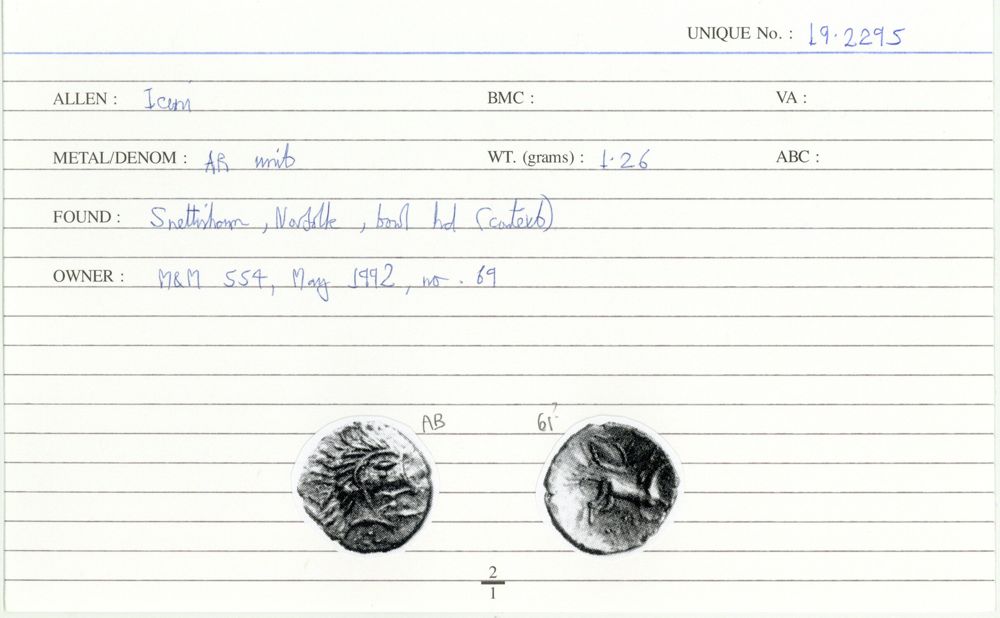 UNIQUE No. : 19.2295
ALLEN : Iceni BMC : VA :
METAL/DENOM : AR unit WT. (grams) : 1.26 ABC :
FOUND : Snettisham, Norfolk, bowl hd (context)
OWNER : M&M 554, May 1992, no. 69
AB 61?
2
1